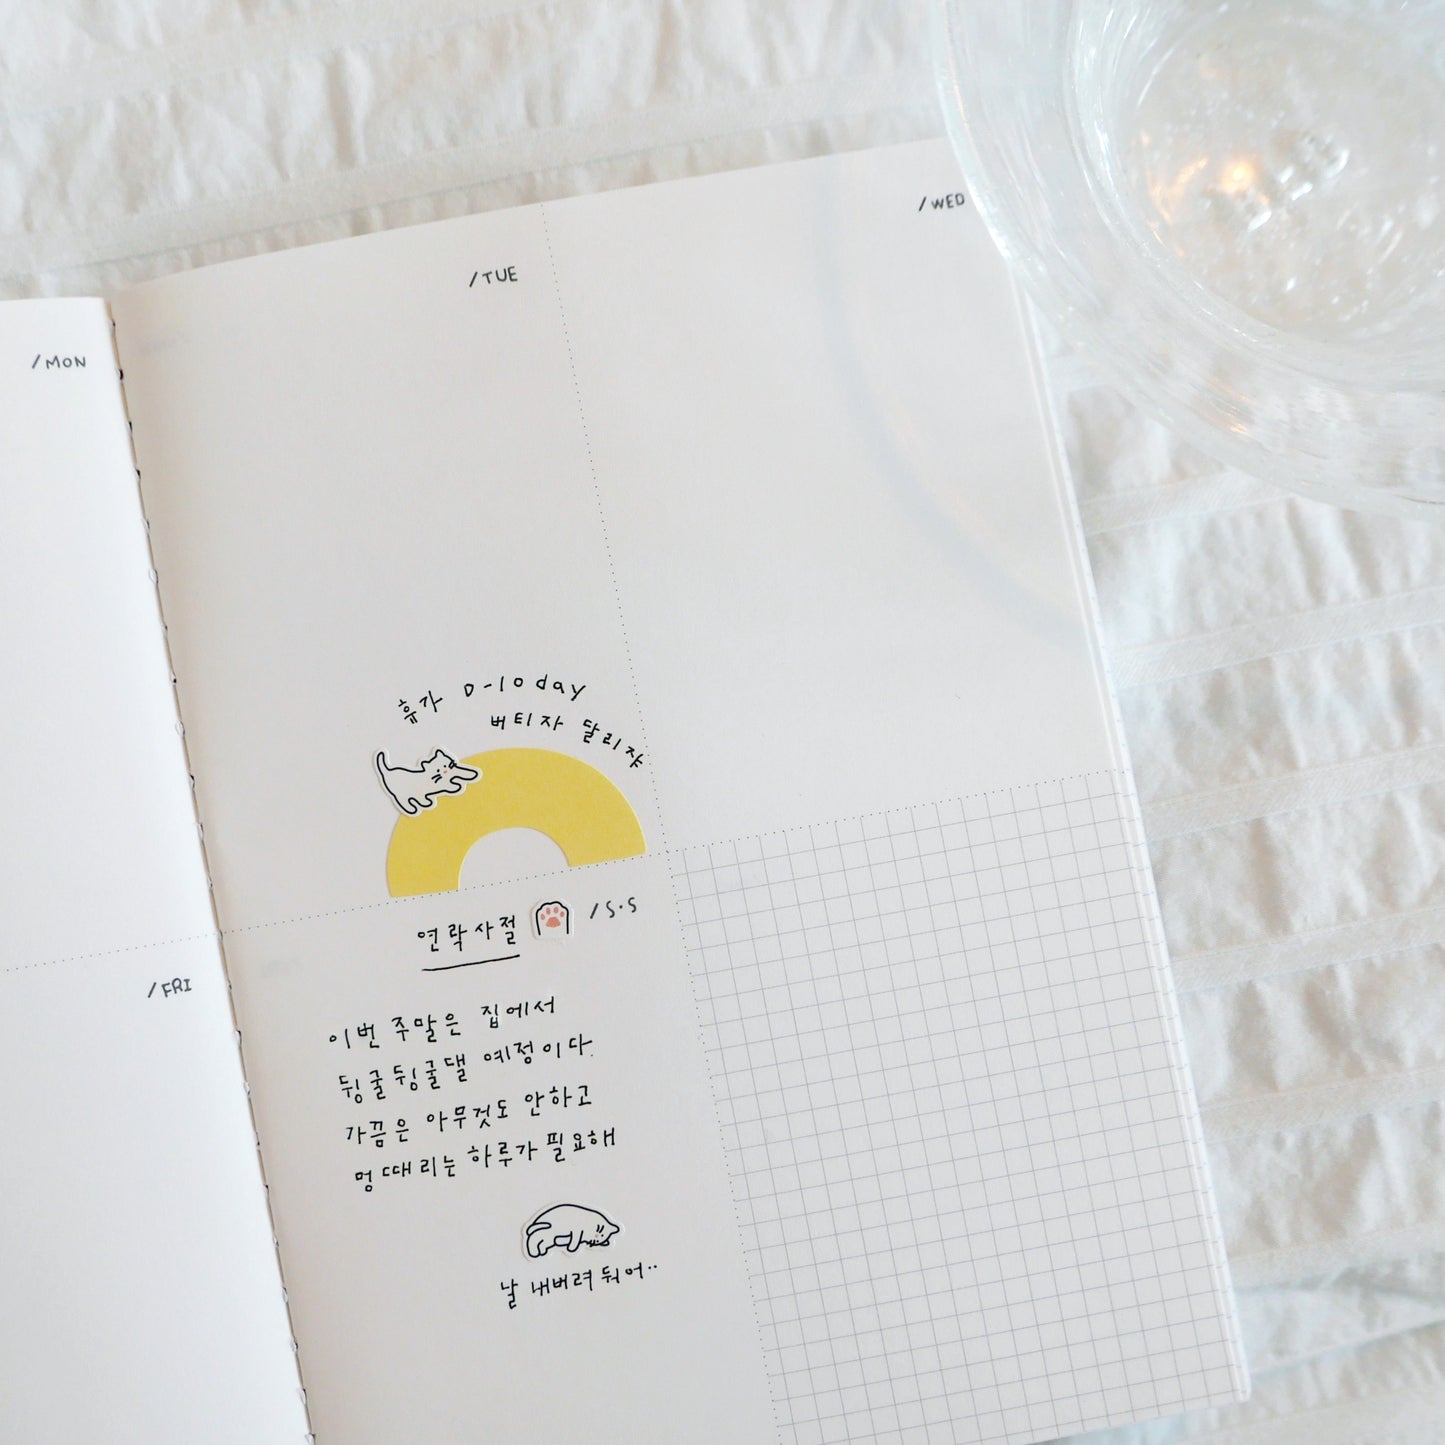 /MON
/TUE
/WED
휴가 D-10day
버티자 달리쟈
/FRI
연락사절
/S·S
이번 주말은 집에서
뒹굴뒹굴댈 예정이다.
가끔은 아무것도 안하고
멍때리는 하루가 필요해
날 내버려 둬어..